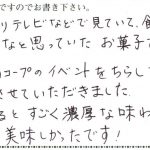 ですのでお書き下さい。
リテレビなどで見ていて、
なと思っていた お菓子
コープのイベントをちらし
させていただきました。
ると すごく濃厚な味わ
美味しかったです!